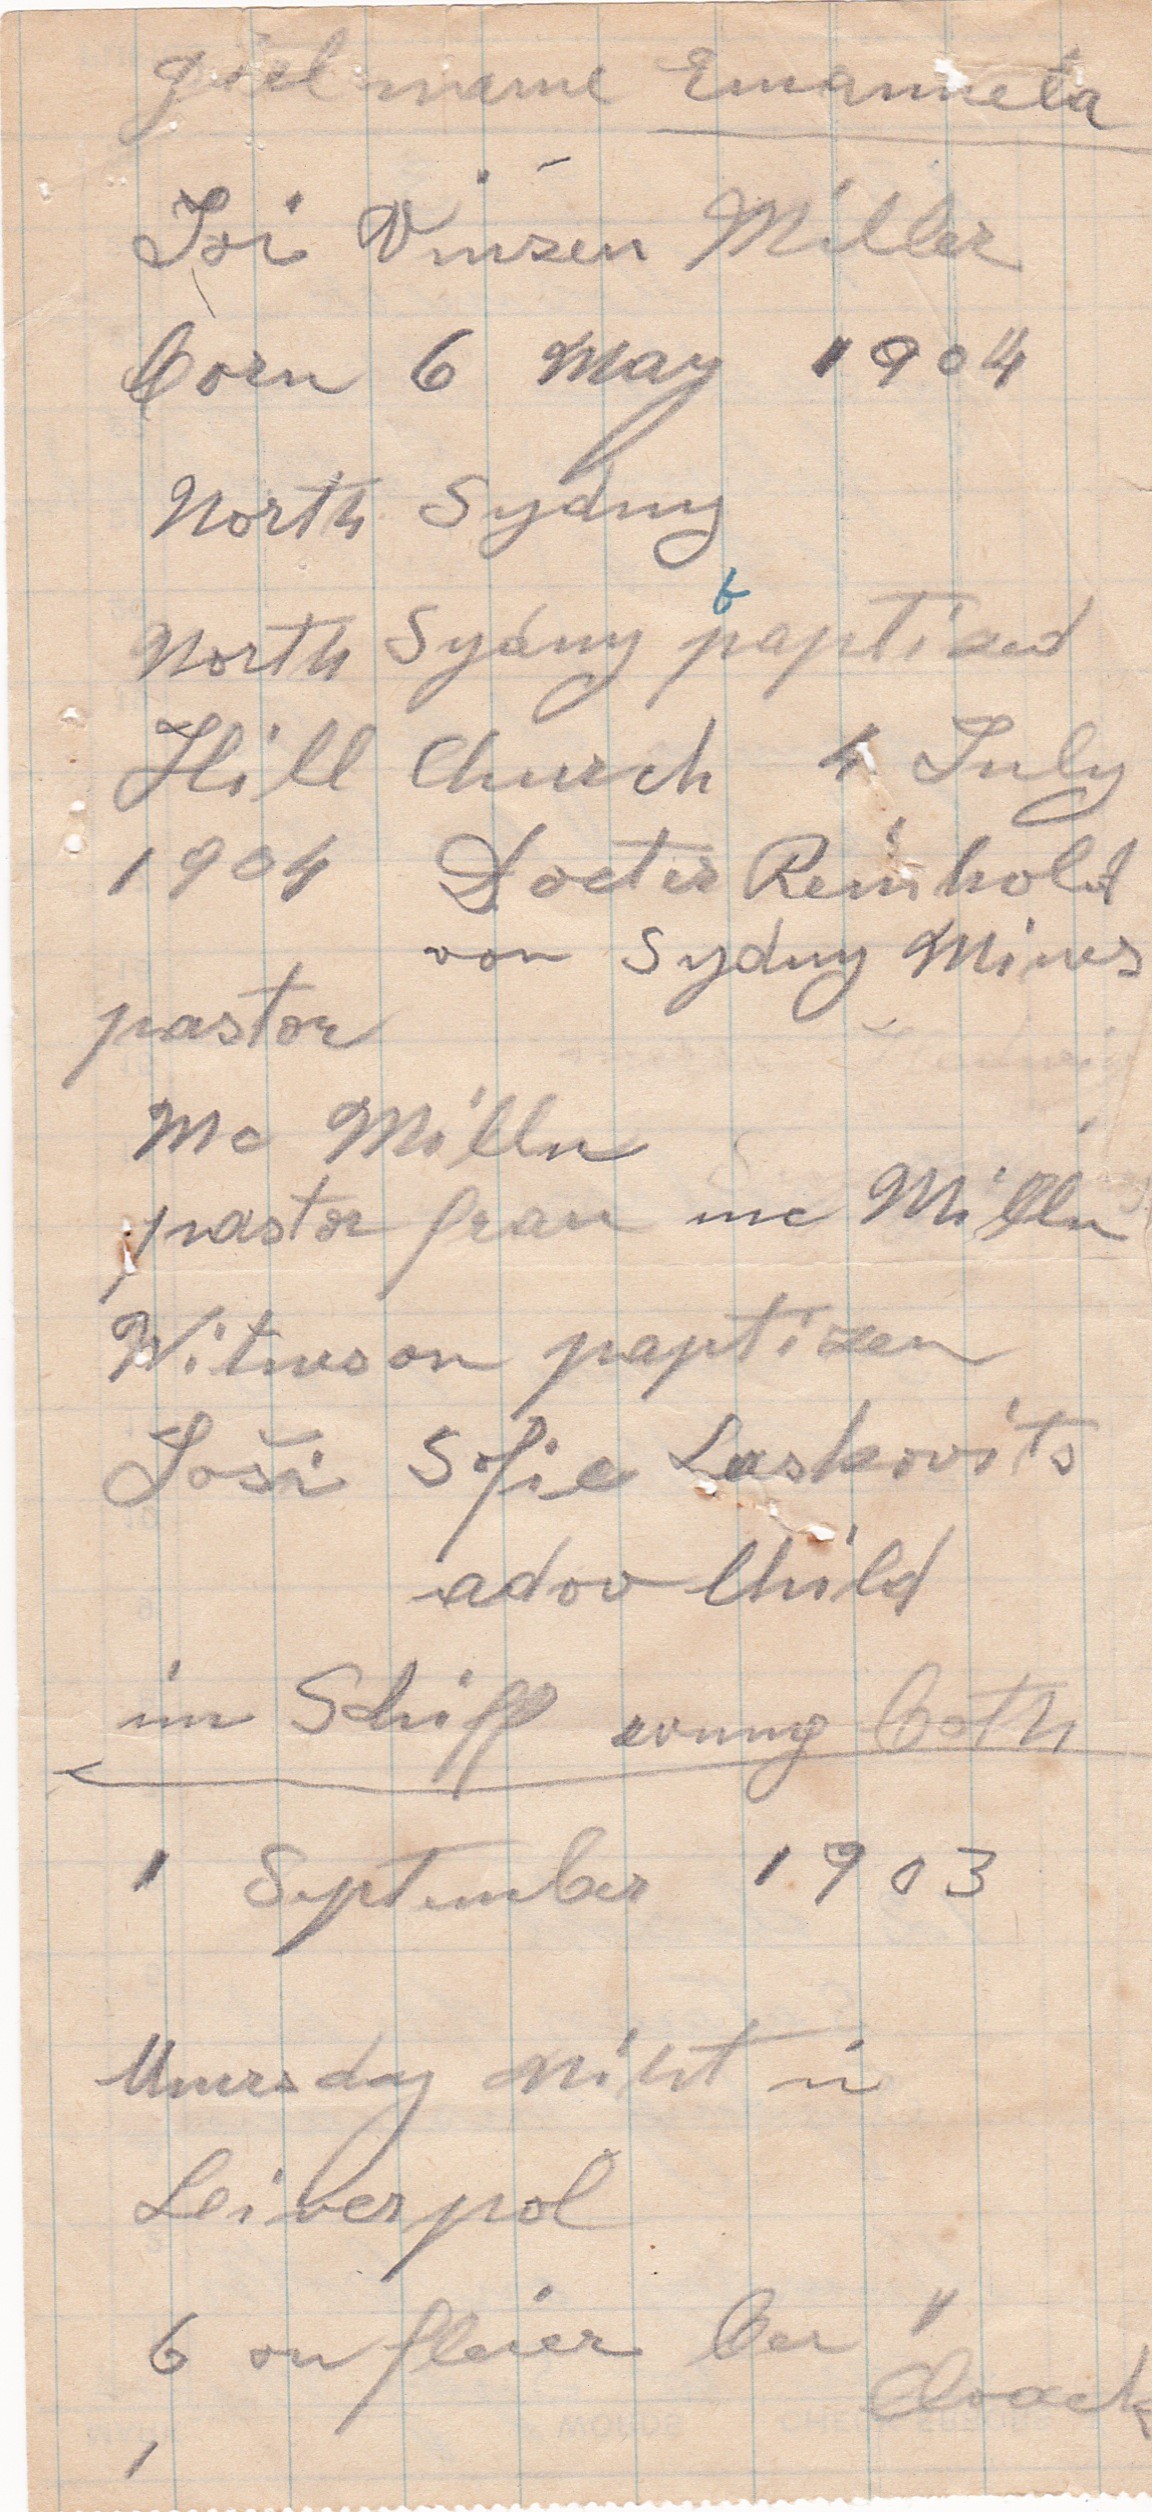 girl name Emanueta
Joi Vinzen Miller
born 6 May 1904
North Sydny
b
North Sydny paptized
Hill Church 4 July
1904 Docter Reinhold
von Sydny Mines
pastor
Mc Milln
pastor frau mc Milln
Witneson paptizen
Joši Sofie Laskovits
adov Child
im Schiff comng both
1 September 1903
thursday niht in
Leiverpol
6 on
Cloack
1